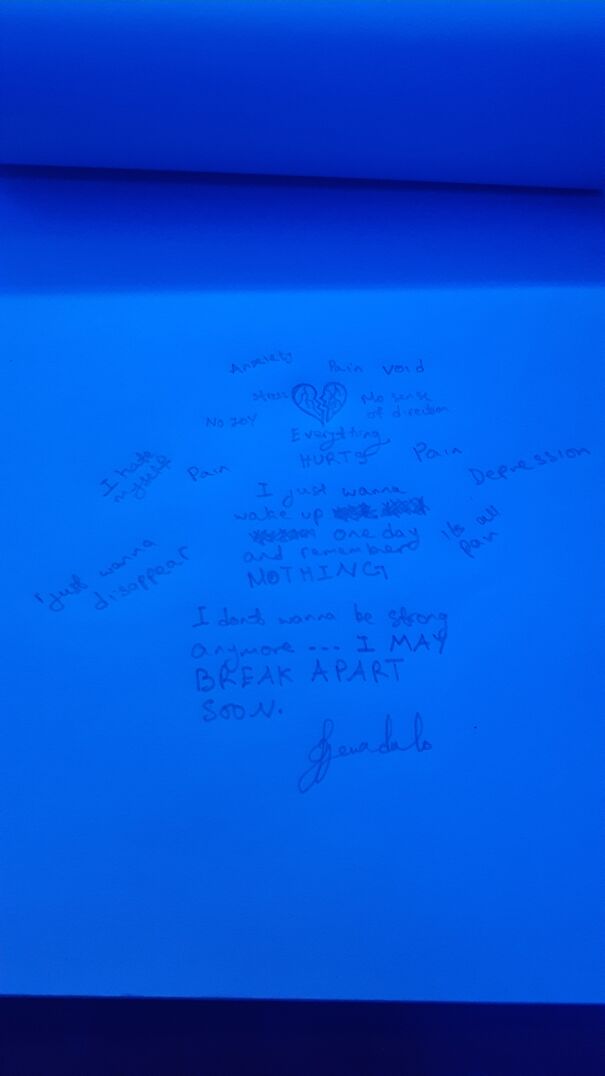 Anxiety
Pain void
Stress
No sense
of direction
No JOY
Everything
HURTS
I hate
myself
Pain
Pain
Depression
I just wanna
wake up
one day
and remember
NOTHING
it's all
pain
I just wanna
disappear
I don't wanna be strong
anymore ... I MAY
BREAK APART
SOON.